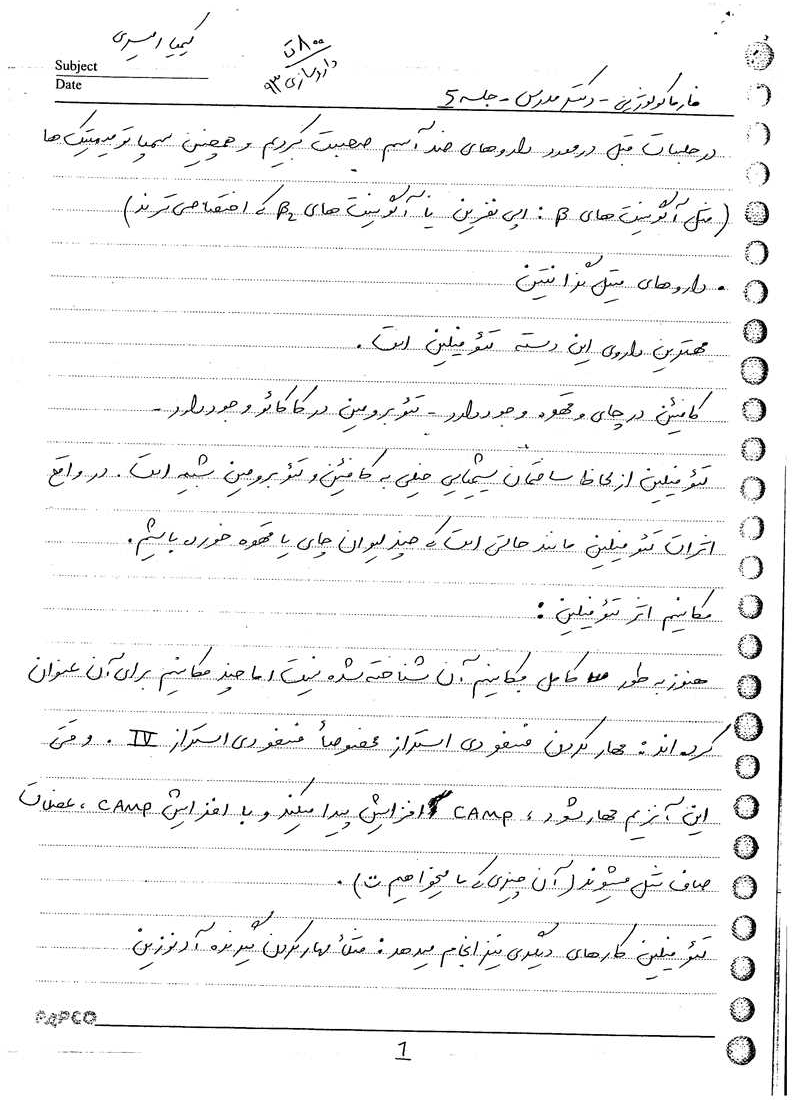 کیمیا امیری
۸۰۰ تا
Subject
داروسازی ۹۳
Date
فارماکولوژی - دکتر مدرس - جلسه 5
در جلسات قبل در مورد داروهای ضد آسم صحبت کردیم و همچنین سمپاتومیمتیک ها
(مثل آگونیست های β : اپی نفرین یا آگونیست های β2 که اختصاصی ترند)
. داروهای متیل گزانتین
مهمترین داروی این دسته تئوفیلین است .
کافئین در چای و قهوه وجود دارد - تئوبرومین در کاکائو وجود دارد -
تئوفیلین از لحاظ ساختمان شیمیایی خیلی به کافئین و تئوبرومین شبیه است . در واقع
اثرات تئوفیلین مانند حالتی است که چند لیوان چای یا قهوه خورده باشیم .
مکانیسم اثر تئوفیلین :
هنوز به طور کامل مکانیسم آن شناخته شده نیست اما چند مکانیسم برای آن عنوان
کرده اند : مهار کردن فسفودی استراز مخصوصاً فسفودی استراز IV . وقتی
این آنزیم مهار شود ، cAMP افزایش پیدا میکند و با افزایش cAMP ، عضلات
صاف شل میشوند (آن چیزی که ما میخواهیم) .
تئوفیلین کارهای دیگری نیز انجام میدهد : مثلاً مهار کردن گیرنده آدنوزین
PAPCO
1